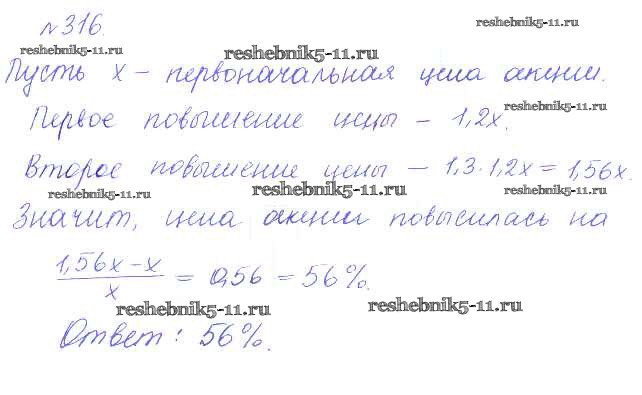 №316. reshebnik5-11.ru
reshebnik5-11.ru reshebnik5-11.ru
Пусть x – первоначальная цена акции.
reshebnik5-11.ru
Первое повышение цены – 1,2x.
Второе повышение цены – 1,3·1,2x = 1,56x.
reshebnik5-11.ru reshebnik5-11.ru reshebnik5-11.ru
Значит, цена акции повысилась на
(1,56x – x)/x = 0,56 = 56%.
reshebnik5-11.ru reshebnik5-11.ru
Ответ: 56%.